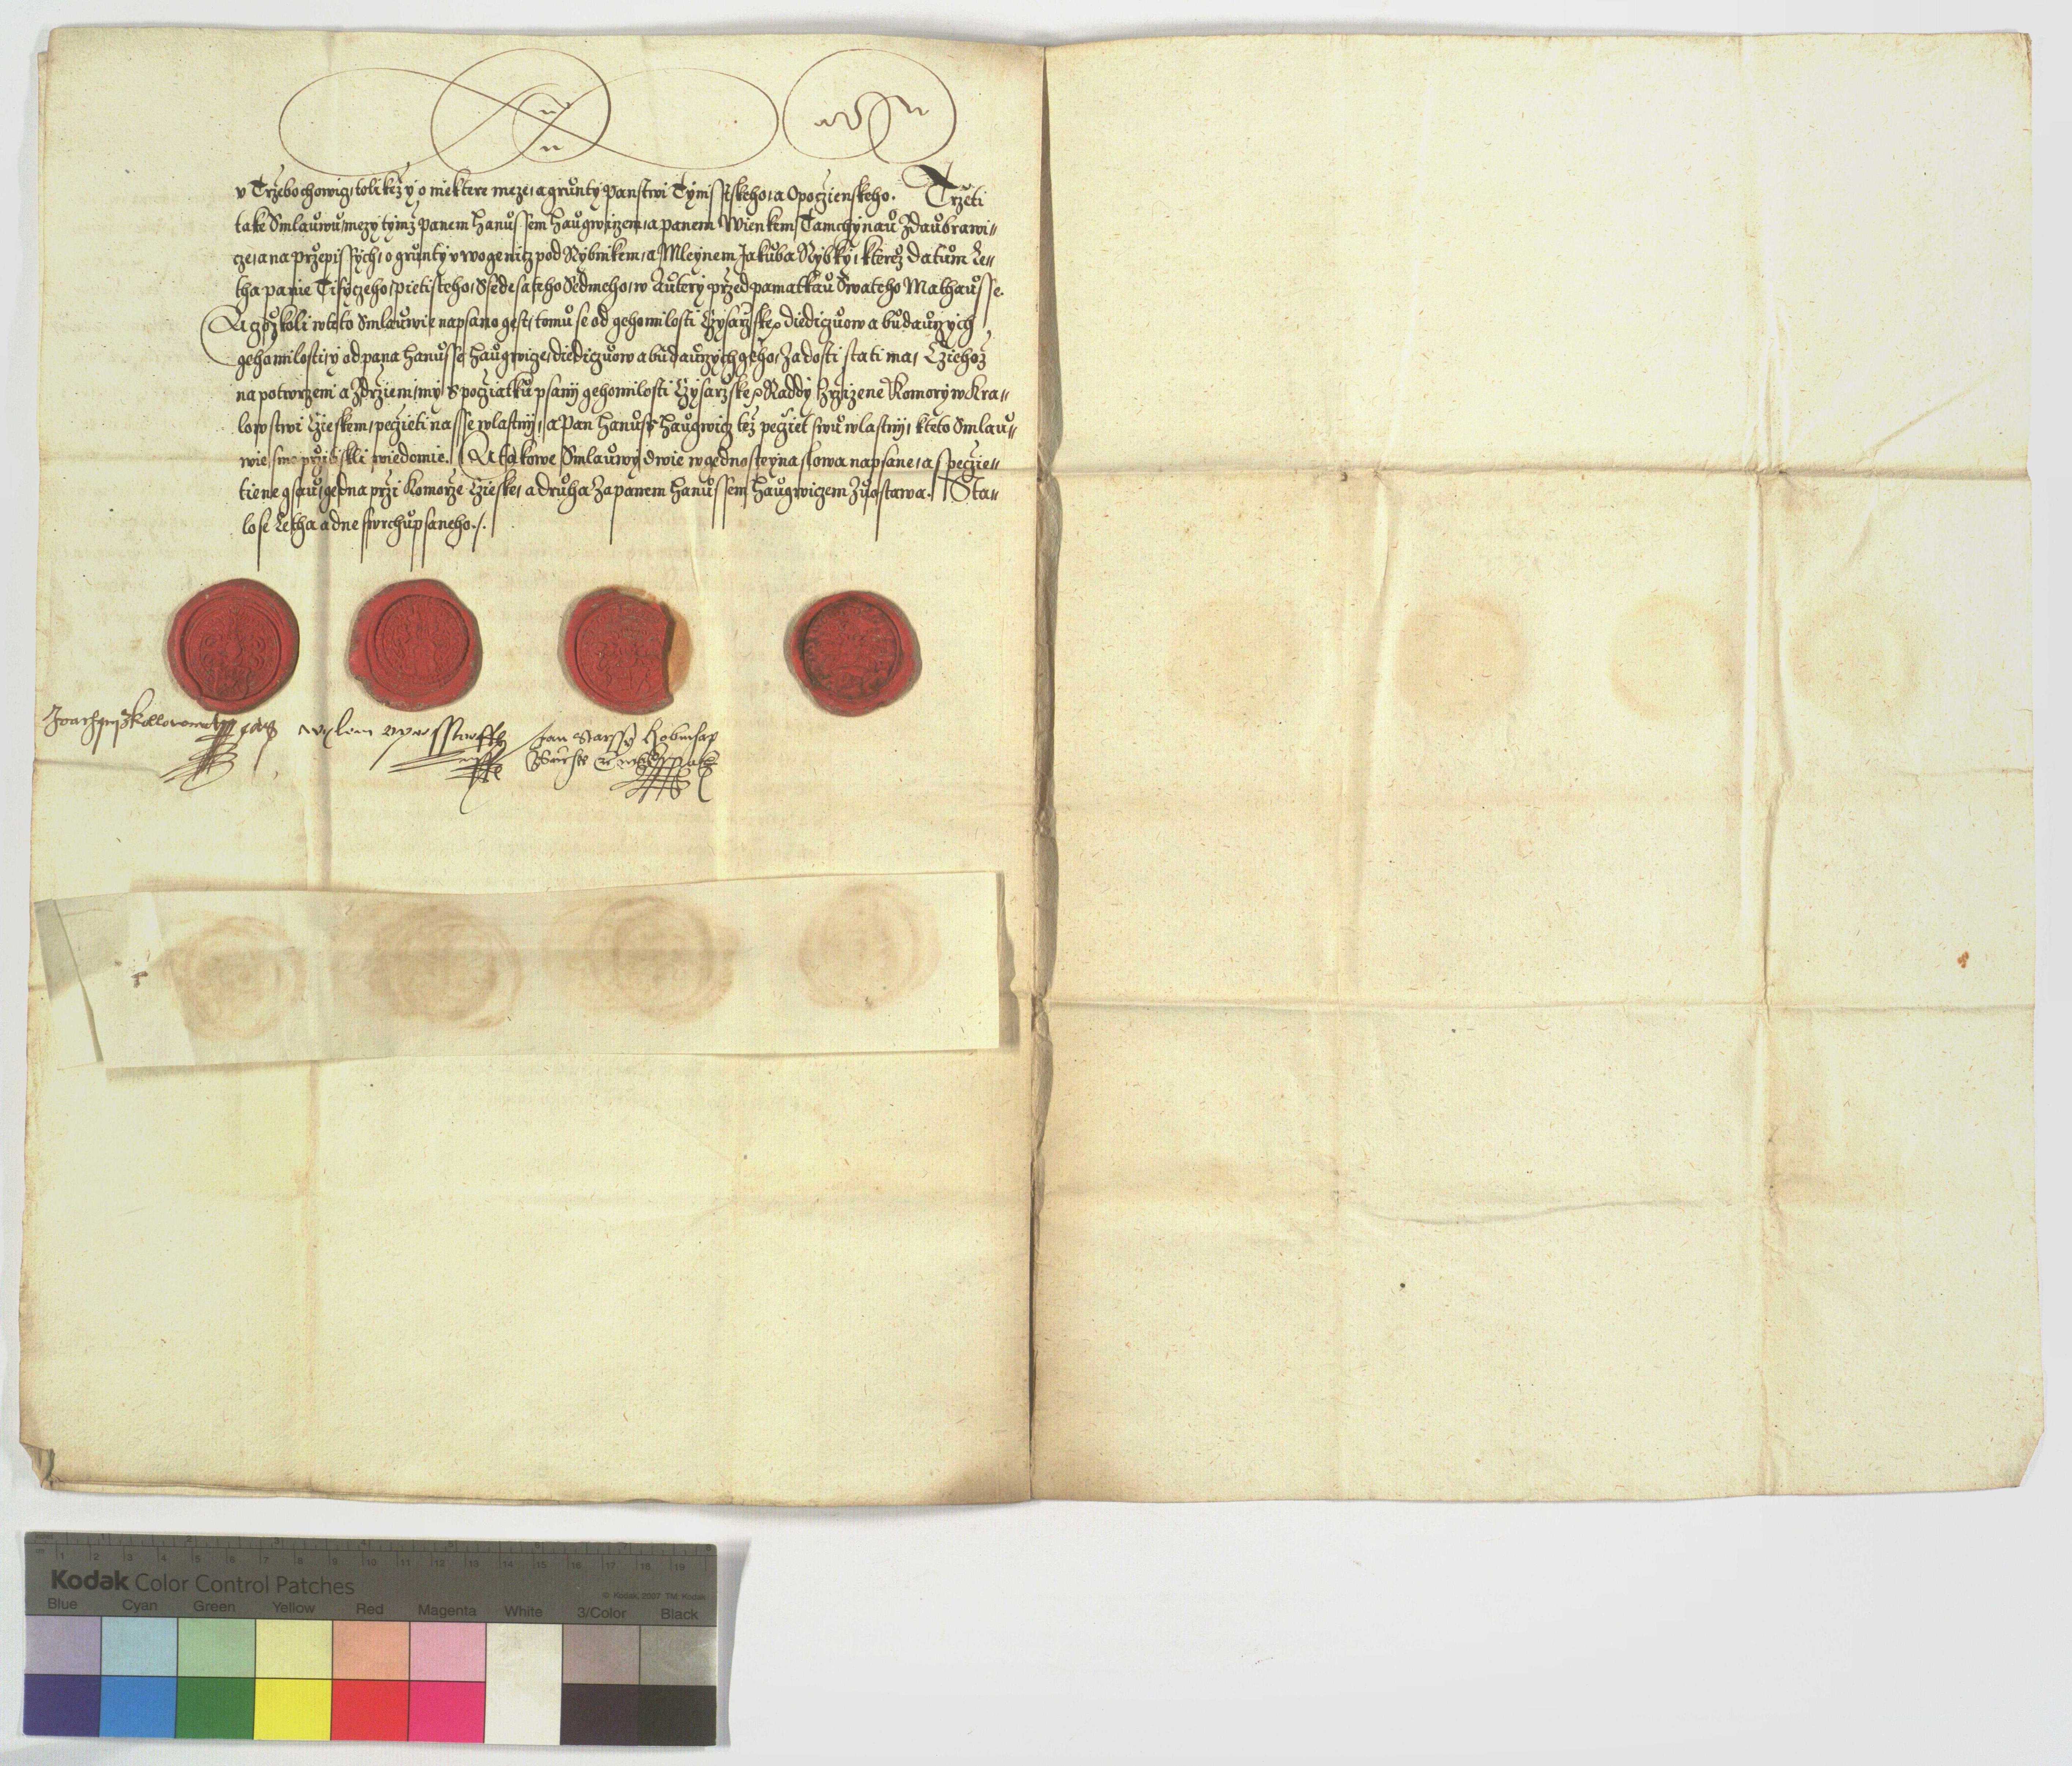 v Trzebochowig, tolikéž y o niektere meze, a grunty Panstwi Týmisstskeho, a Opoczienskeho. Trzeti
take Smlauwu, mezy tymž Panem Hanussem Haugwizem, a panem Wienkem, Tamchynau Zdaubrawi„
cze, a na przepissých, o grunty v wogenicz pod Rybnikem, a Mleynem Jakuba Rybký, kterež datum Le„
tha panie Tisýczeho, pietisteho, Ssedesateho Sedmeho, w Auterý przed pamatkau Swateho Mathausse.
A czož koli wteto Smlauwie napsano gest, tomu se od geho milosti Czysarzske, diediczuow a budauczych
geho milosti, y od pana Hanusse Haugwicze, diediczuow a budauczych geho, Zadosti stati ma, Cziehož
na potwrzeni a Zdrzieni, my Spocziatku psanij geho milosti Czysarzske Raddý Zrzizene Komorý w Kra„
lowstwi Czieskem, peczieti nasse wlastnij, a Pan Hanuss Haugwicz tež pecziet swu wlastnij, kteto Smlau„
wie sme przitiskli wiedomie. A takowe Smlauwý dwie w gednosteyna slowa napsane, a speczie„
tiene gsau, gedna przi Komorze Czieske, a druha Zapanem Hanussem Haugwiczem Zuostawa. Sta„
lo se Letha a dne swrchupsaneho./.
Joachym z kollowrat
wylem
Jan starssý
Kodak Color Control Patches
© Kodak, 2007 TM: Kodak
Blue Cyan Green Yellow Red Magenta White 3/Color Black